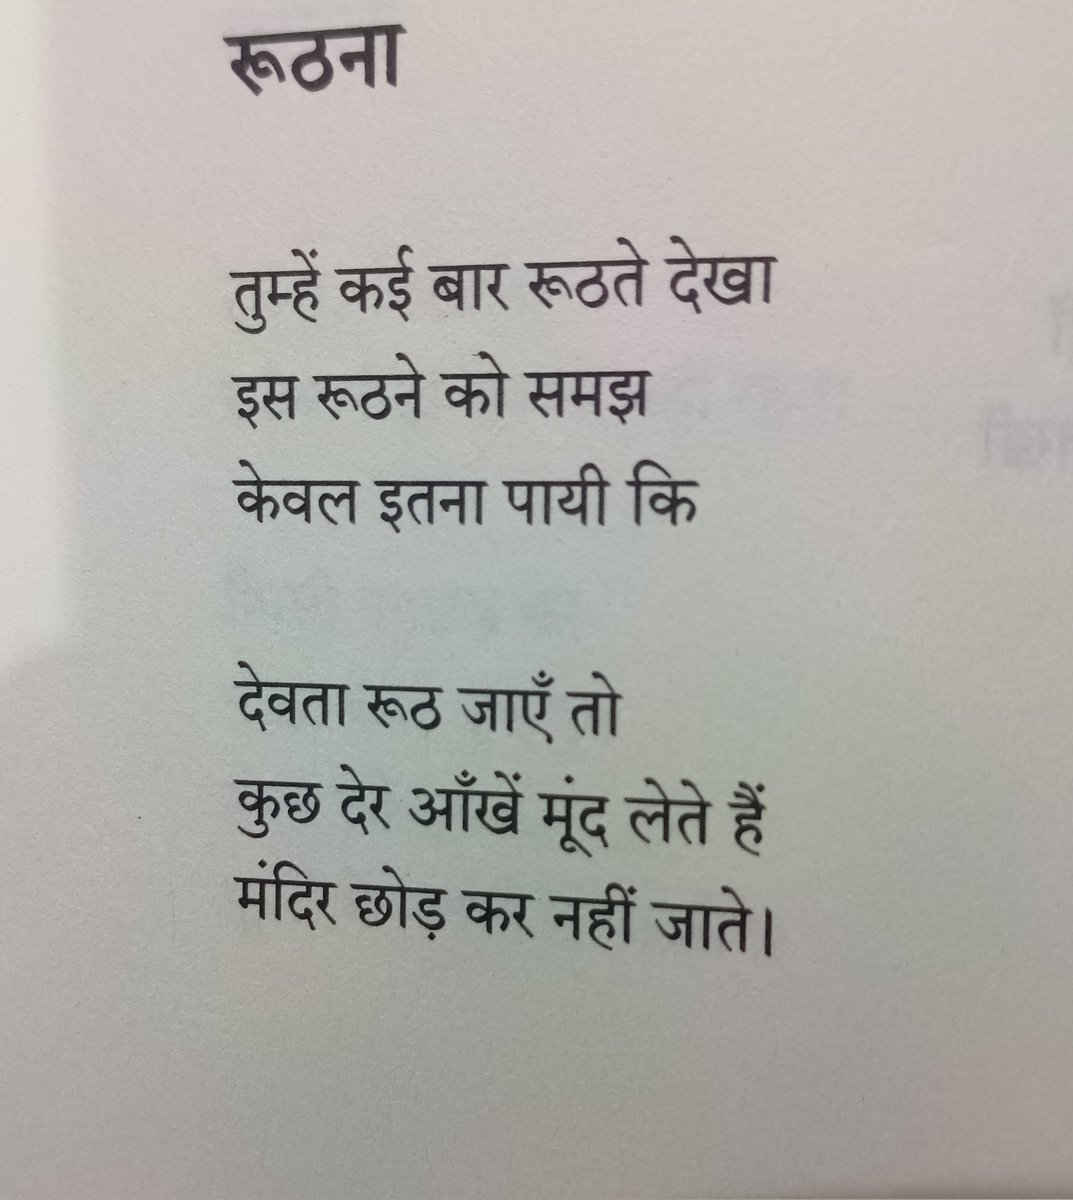 रूठना
तुम्हें कई बार रूठते देखा
इस रूठने को समझ
केवल इतना पायी कि
देवता रूठ जाएँ तो
कुछ देर आँखें मूंद लेते हैं
मंदिर छोड़ कर नहीं जाते।